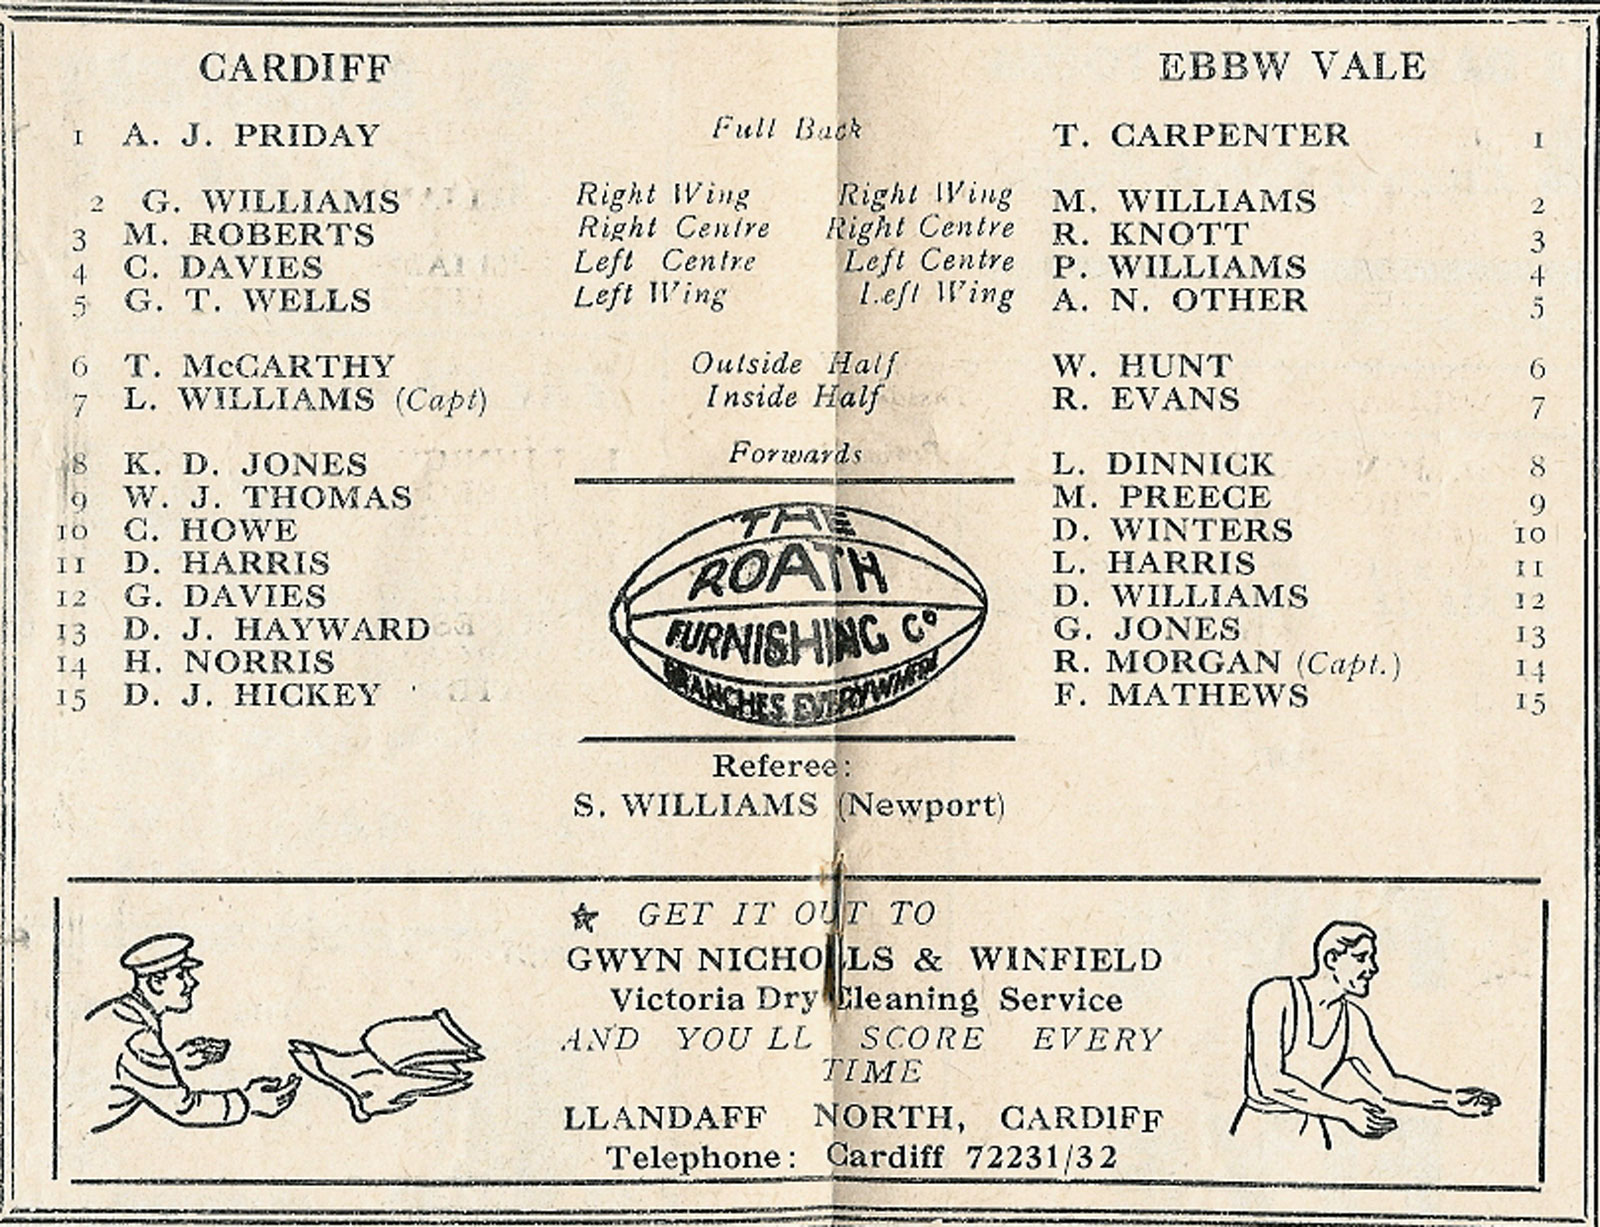 CARDIFF EBBW VALE
1 A. J. PRIDAY Full Back T. CARPENTER 1
2 G. WILLIAMS Right Wing Right Wing M. WILLIAMS 2
3 M. ROBERTS Right Centre Right Centre R. KNOTT 3
4 C. DAVIES Left Centre Left Centre P. WILLIAMS 4
5 G. T. WELLS Left Wing Left Wing A. N. OTHER 5
6 T. McCARTHY Outside Half W. HUNT 6
7 L. WILLIAMS (Capt) Inside Half R. EVANS 7
Forwards
8 K. D. JONES L. DINNICK 8
9 W. J. THOMAS M. PREECE 9
10 C. HOWE D. WINTERS 10
11 D. HARRIS L. HARRIS 11
12 G. DAVIES D. WILLIAMS 12
13 D. J. HAYWARD G. JONES 13
14 H. NORRIS R. MORGAN (Capt.) 14
15 D. J. HICKEY F. MATHEWS 15
THE
ROATH
FURNISHING Co
BRANCHES EVERYWHERE
Referee:
S. WILLIAMS (Newport)
★ GET IT OUT TO
GWYN NICHOLLS & WINFIELD
Victoria Dry Cleaning Service
AND YOU LL SCORE EVERY
TIME
LLANDAFF NORTH, CARDIFF
Telephone: Cardiff 72231/32